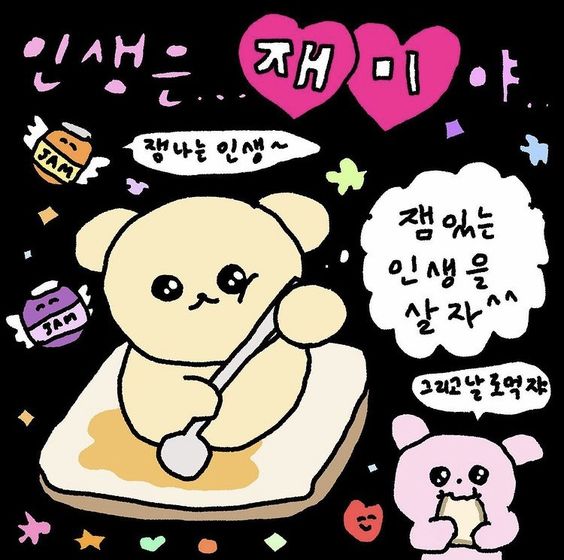 인생은... 재미야..
JAM
잼나는 인생~
잼있는
인생을
살자^^
JAM
그리고 날 로먹쟈